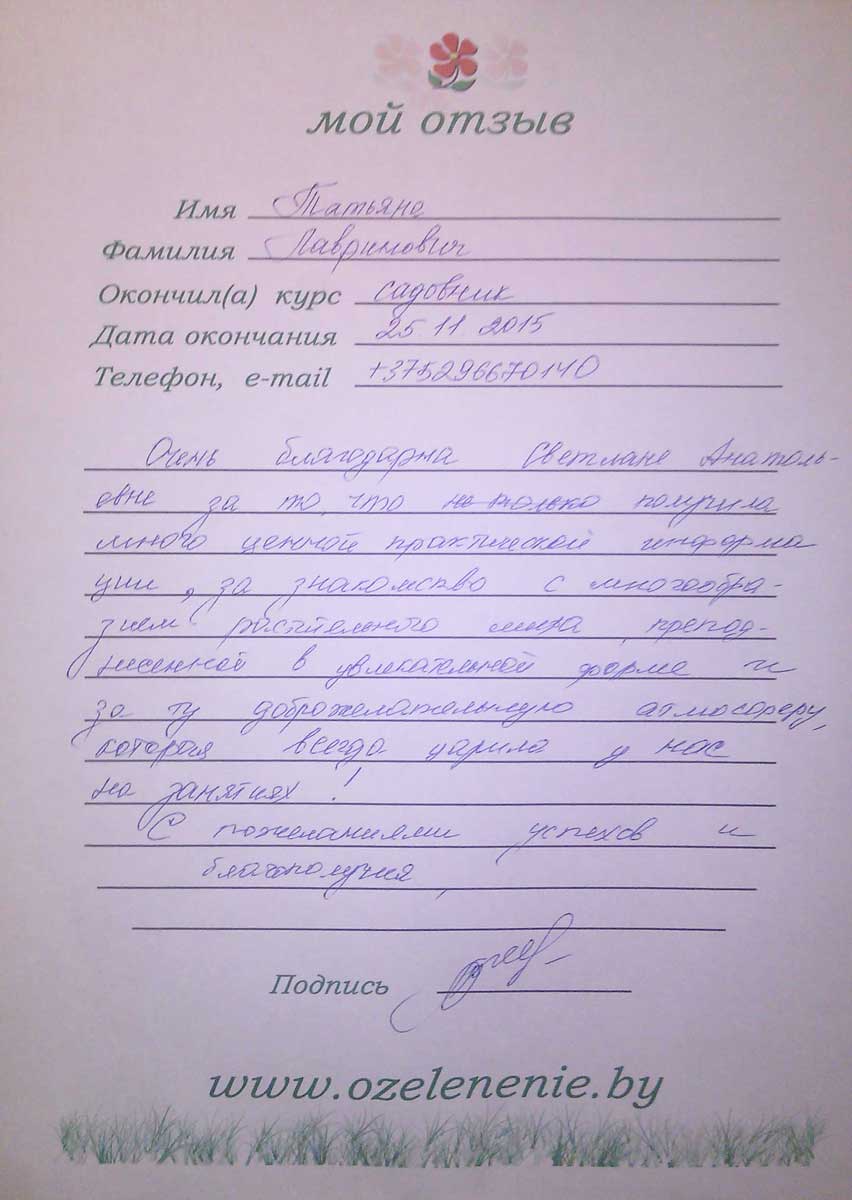 мой отзыв
Имя Татьяне
Фамилия Лавринович
Окончил(а) курс садовник
Дата окончания 25 11 2015
Телефон, e-mail +375296670140
Очень благодарна Светлане Анатоль-
евне за то, что не только получила
много ценной практической информа
ции, за знакомство с многообра-
зием растительного мира, препод-
несенной в увлекательной форме и
за ту доброжелательную атмосферу,
которая всегда царила у нас
на занятиях!
С пожеланиями успехов и
благополучия,
Подпись
www.ozelenenie.by